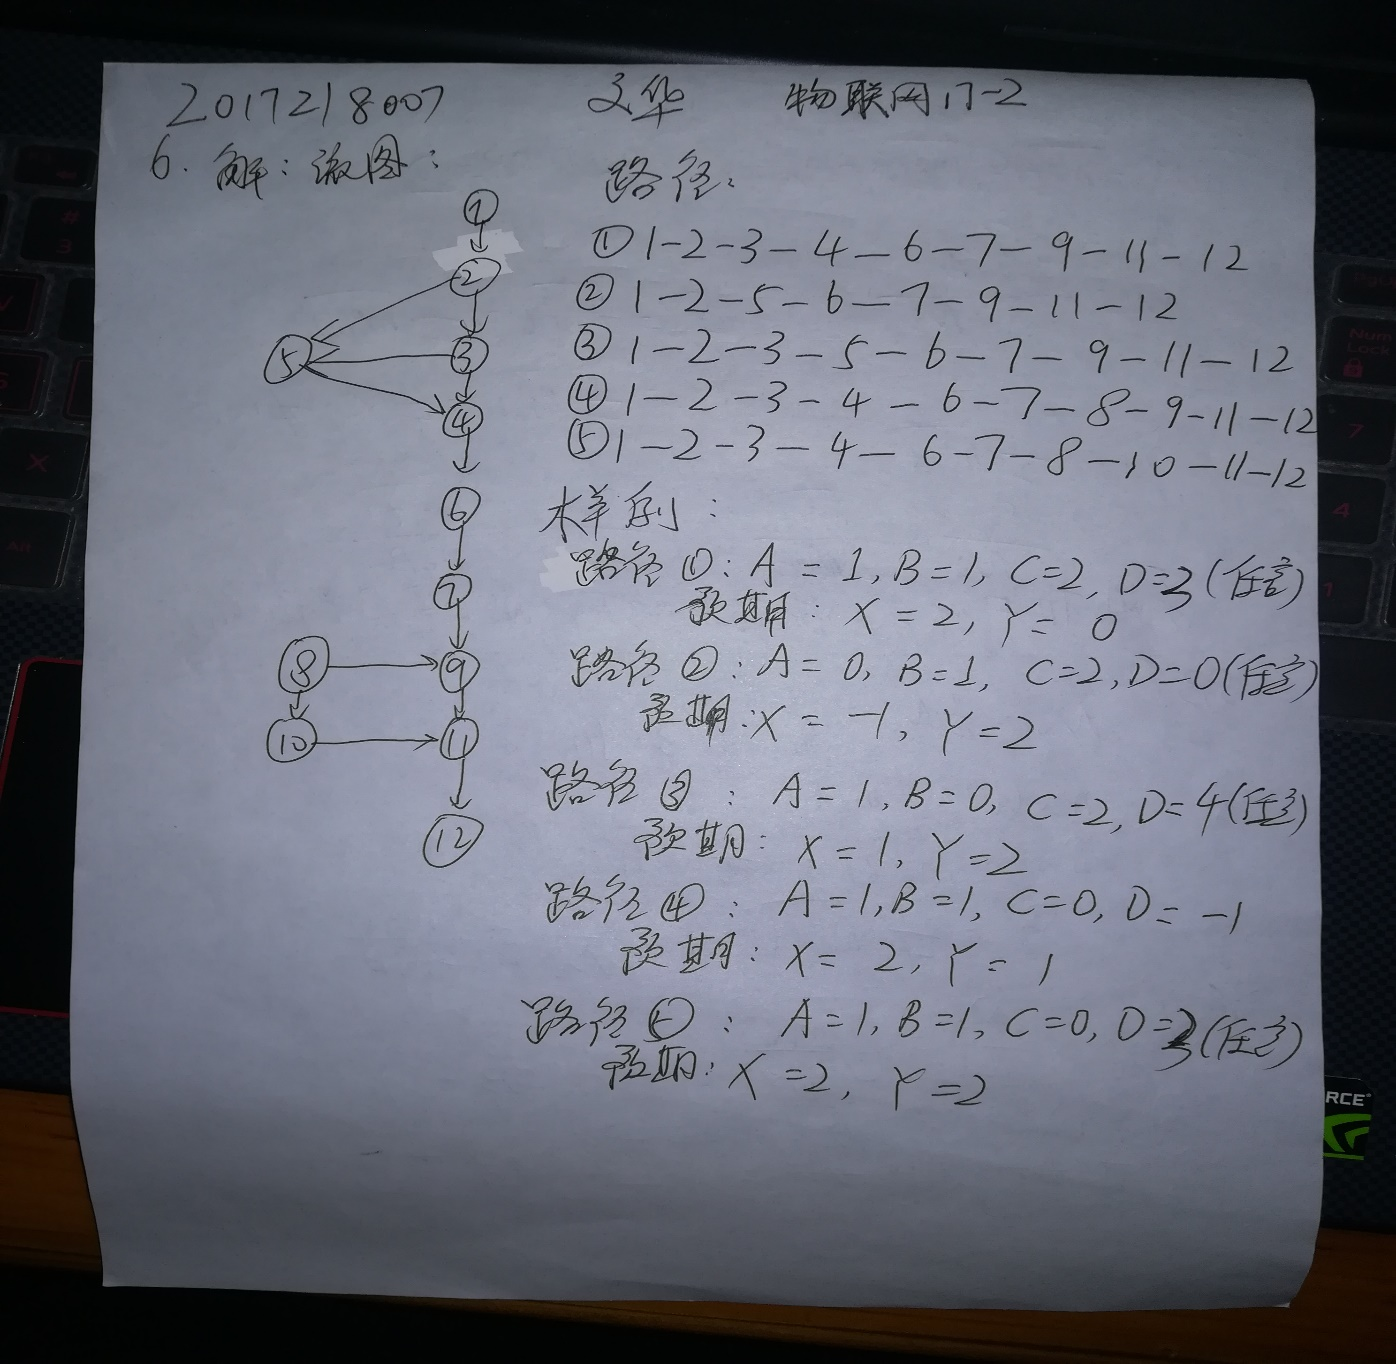 2017218007 文华 物联网17-2
6. 解: 流图:
1
2
5 3
4
6
7
8 9
10 11
12
路径:
① 1-2-3-4-6-7-9-11-12
② 1-2-5-6-7-9-11-12
③ 1-2-3-5-6-7-9-11-12
④ 1-2-3-4-6-7-8-9-11-12
⑤ 1-2-3-4-6-7-8-10-11-12
样例:
路径①: A=1, B=1, C=2, D=3(任意)
预期: X=2, Y=0
路径②: A=0, B=1, C=2, D=0(任意)
预期: X=-1, Y=2
路径③: A=1, B=0, C=2, D=4(任意)
预期: X=1, Y=2
路径④: A=1, B=1, C=0, D=-1
预期: X=2, Y=1
路径⑤: A=1, B=1, C=0, D=3(任意)
预期: X=2, Y=2
RCE